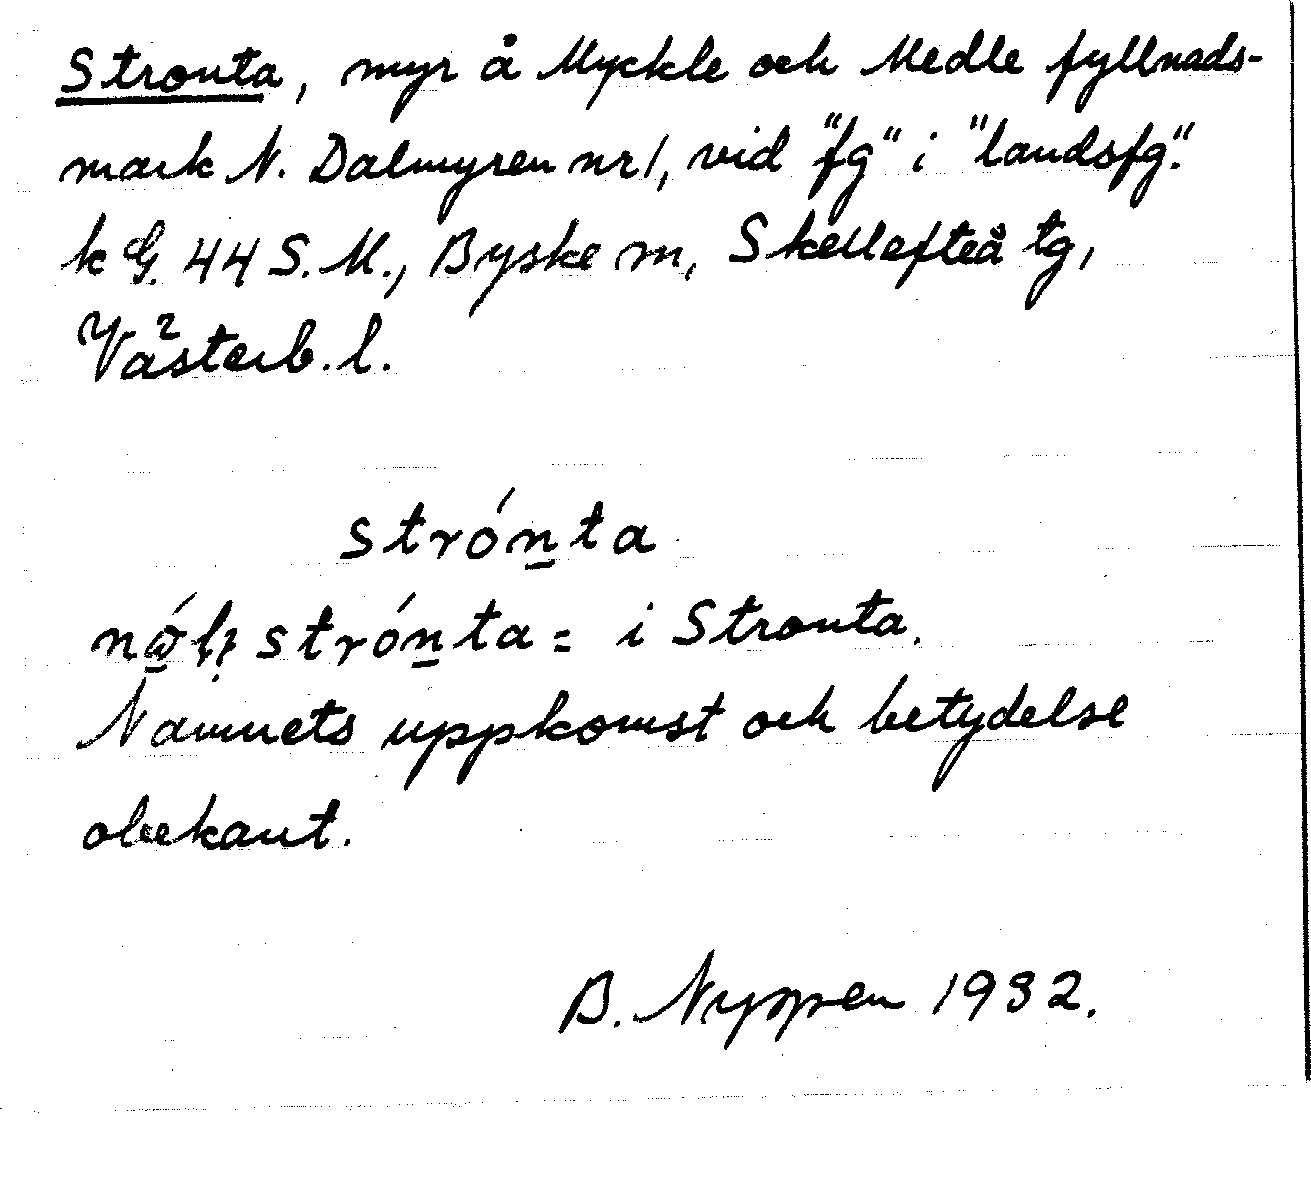 Stronta, myr å Myckle och Medle fyllnads-
mark N. Dalmyren nr 1, vid "fg" i "landsfg".
k G. 44 S.M., Byske m, Skellefteå tg,
Västerb. l.
strón̲ta
strón̲ta = i Stronta.
Namnets uppkomst och betydelse
obekant.
B. Nyppen 1932.